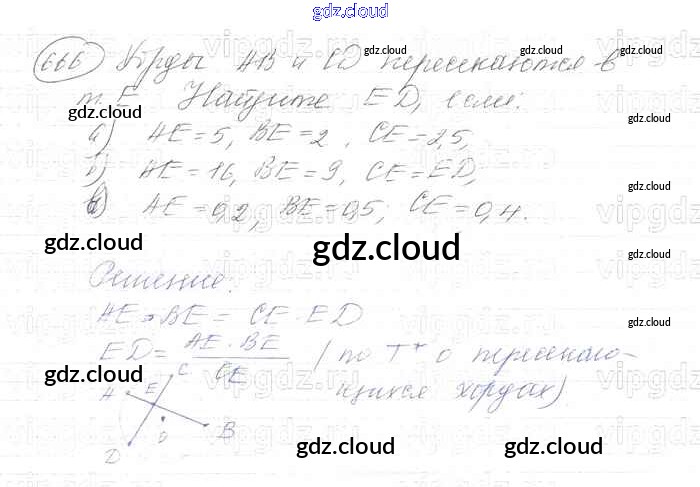 gdz.cloud
666 Хорды AB и CD пересекаются в
т. E. Найдите ED, если:
а) AE = 5, BE = 2, CE = 2,5,
б) AE = 16, BE = 9, CE = ED,
в) AE = 0,2, BE = 0,5; CE = 0,4.
gdz.cloud
gdz.cloud
gdz.cloud
gdz.cloud
gdz.cloud
gdz.cloud
gdz.cloud
gdz.cloud
Решение:
AE · BE = CE · ED
ED = AE · BE / CE (по Тᵐ о пересекаю-
щихся хордах)
gdz.cloud
gdz.cloud
A E C
O B
D
gdz.cloud
gdz.cloud